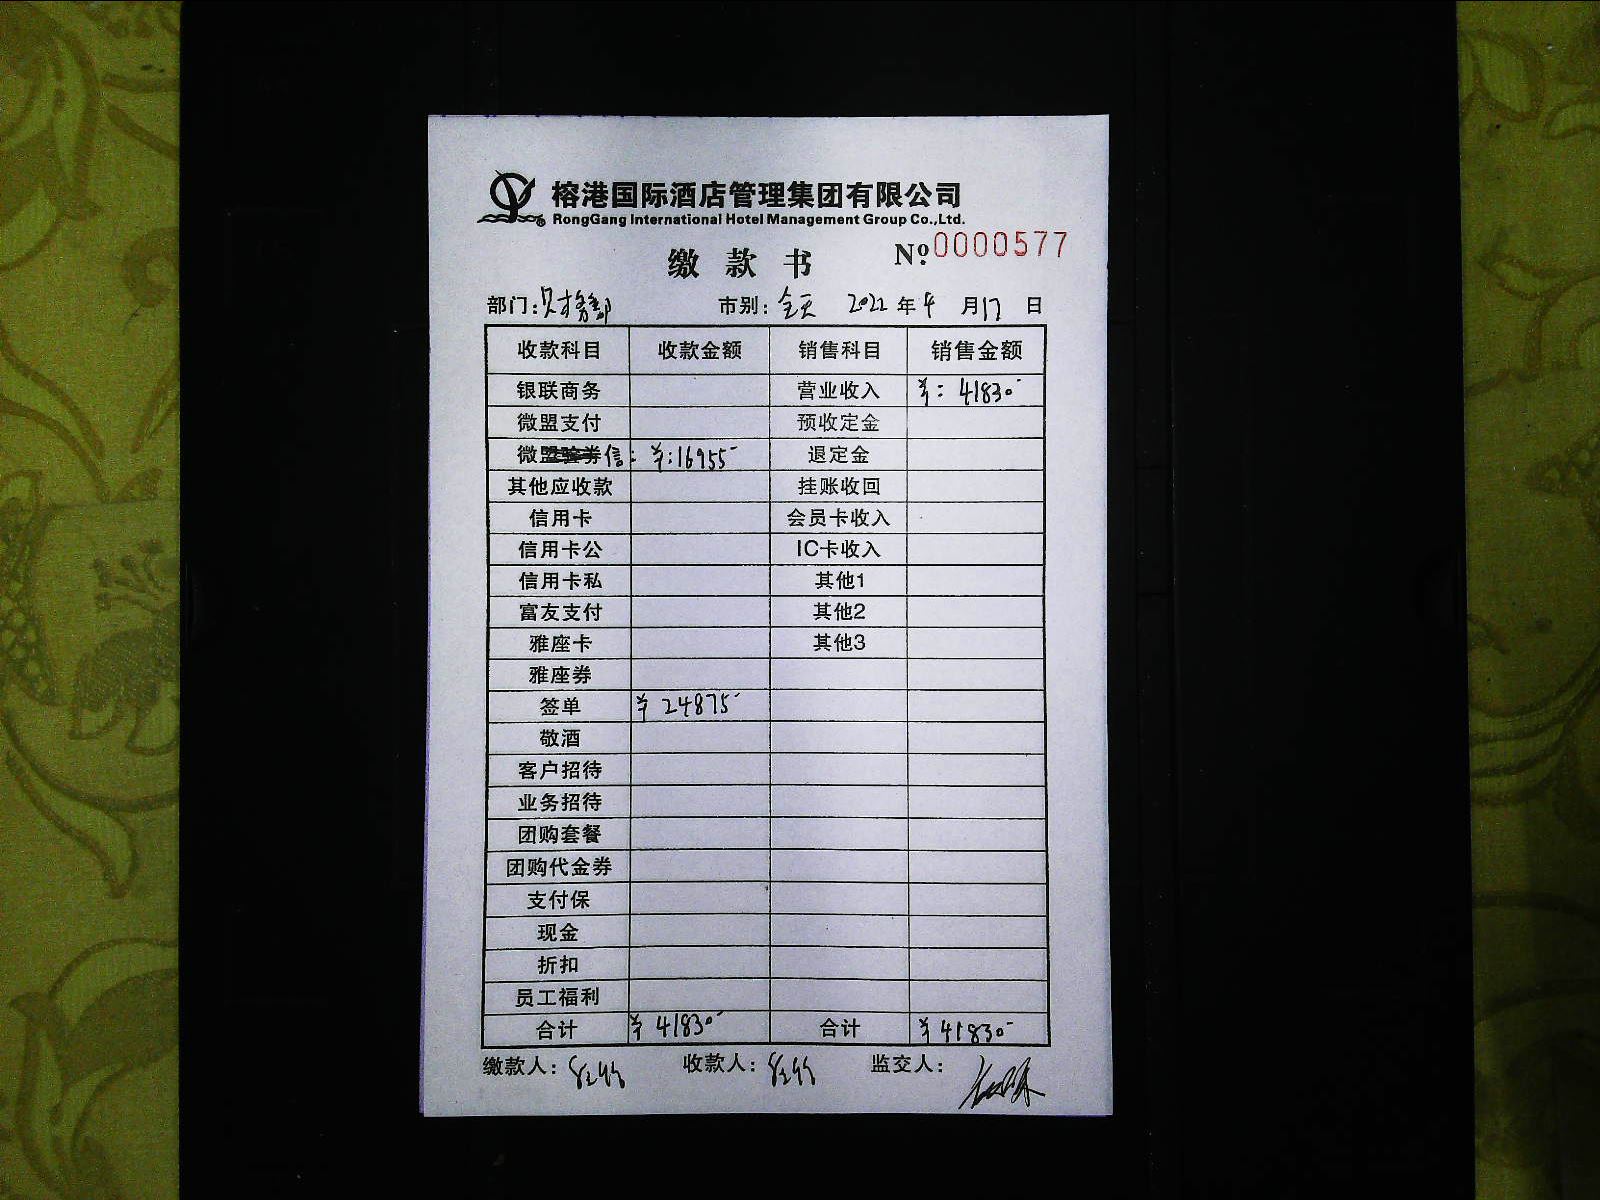 榕港国际酒店管理集团有限公司
RongGang International Hotel Management Group Co.,Ltd.
缴款书 Nº:0000577
部门:财务部 市别:全天 2022年4月17日
收款科目 收款金额 销售科目 销售金额
银联商务 营业收入 ¥:41830-
微盟支付 预收定金
微信: ¥:16955- 退定金
其他应收款 挂账收回
信用卡 会员卡收入
信用卡公 IC卡收入
信用卡私 其他1
富友支付 其他2
雅座卡 其他3
雅座券
签单 ¥24875-
敬酒
客户招待
业务招待
团购套餐
团购代金券
支付保
现金
折扣
员工福利
合计 ¥41830- 合计 ¥41830-
缴款人: 收款人: 监交人: